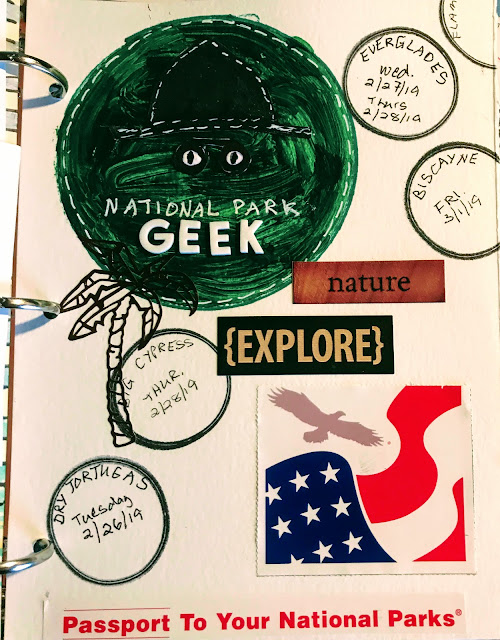 FLAM
EVERGLADES
Wed.
2/27/19
Thurs
2/28/19
BISCAYNE
FRI.
3/1/19
NATIONAL PARK
GEEK
nature
{EXPLORE}
BIG CYPRESS
THUR.
2/28/19
DRY TORTUGAS
Tuesday
2/26/19
Passport To Your National Parks®